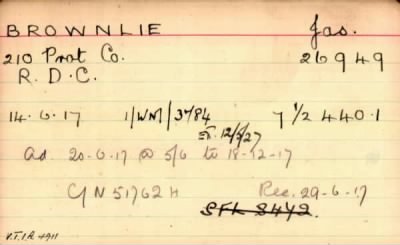 BROWNLIE Jas.
210 Prot Co. 26949
R. D. C.
14.6.17 1/WM/3784 7 1/2 440.1
12/5/27
ad. 20-6-17 @ 5/6 to 18-12-17
C/N 51762 H Rec. 29-6-17
SFL 8442.
V.T.1.R. 4911